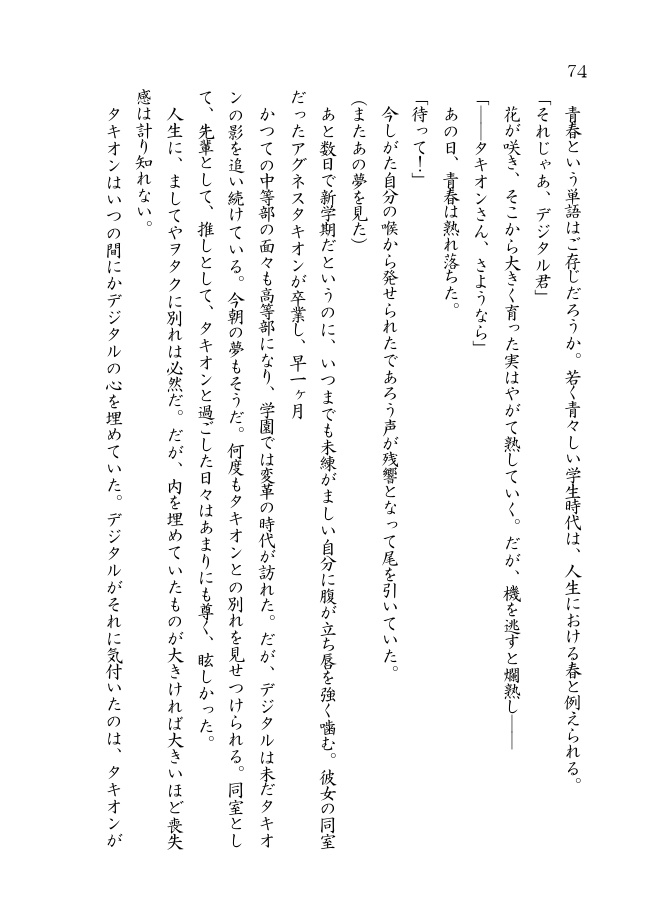 74
青春という単語はご存じだろうか。若く青々しい学生時代は、人生における春と例えられる。
「それじゃあ、デジタル君」
花が咲き、そこから大きく育った実はやがて熟していく。だが、機を逃すと爛熟し――
「――タキオンさん、さようなら」
あの日、青春は熟れ落ちた。
「待って！」
今しがた自分の喉から発せられたであろう声が残響となって尾を引いていた。
(またあの夢を見た)
あと数日で新学期だというのに、いつまでも未練がましい自分に腹が立ち唇を強く噛む。彼女の同室
だったアグネスタキオンが卒業し、早一ヶ月
かつての中等部の面々も高等部になり、学園では変革の時代が訪れた。だが、デジタルは未だタキオ
ンの影を追い続けている。今朝の夢もそうだ。何度もタキオンとの別れを見せつけられる。同室とし
て、先輩として、推しとして、タキオンと過ごした日々はあまりにも尊く、眩しかった。
人生に、ましてやヲタクに別れは必然だ。だが、内を埋めていたものが大きければ大きいほど喪失
感は計り知れない。
タキオンはいつの間にかデジタルの心を埋めていた。デジタルがそれに気付いたのは、タキオンが